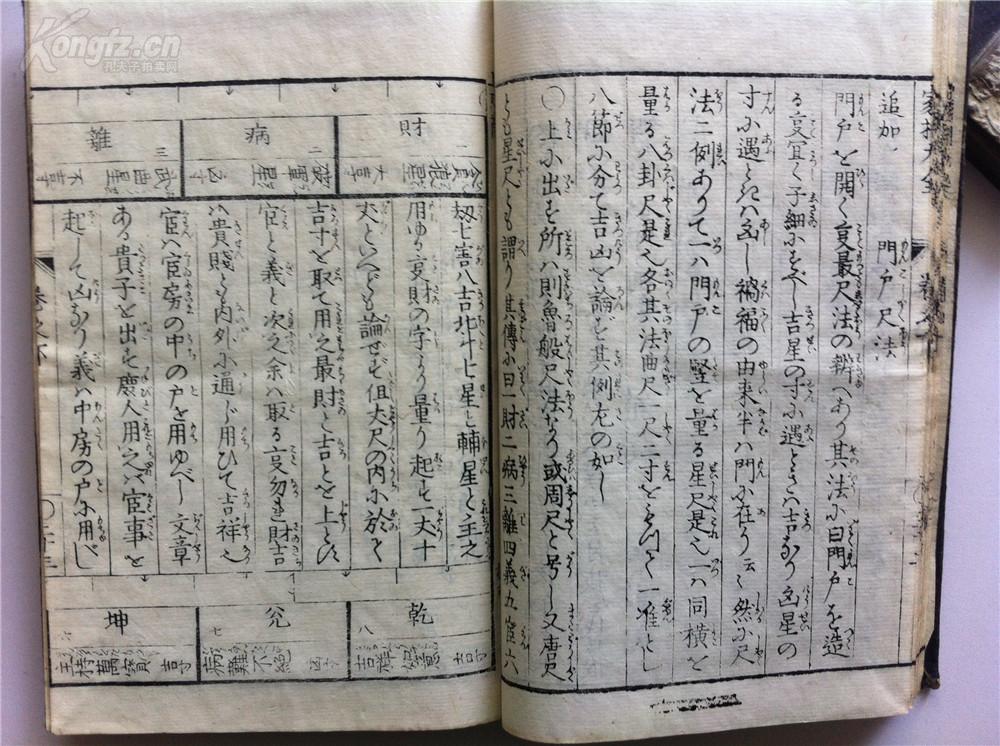 追加
門戸尺法
門戸を開く亥最尺法の辨へあり其法に曰門戸を造
る亥宜く子細にすべし吉星の寸に遇ときハ吉なり凶星の
寸に遇ときハ凶し禍福の由来半ハ門に在り云〻然に尺
法二例ありて一ハ門戸の竪を量る星尺是也一ハ同横を
量る八卦尺是也各其法曲尺一尺二寸を
八節に分て吉凶を論ず其例左の如し
〇上に出す所ハ則魯般尺法なり或周尺と号し又唐尺
とも星尺とも謂り其傳に曰一財二病三離四義五官六
劫七害八吉北斗七星と輔星と主之
用ゆる亥財の字より量り起す一丈十
丈といへども論せず但大尺の内に於て
吉寸を取て用之最財と吉とを上とす
官と義と次之余ハ取る亥勿れ財吉
ハ貴賤とも内外に通じ用ひて吉祥也
官ハ官房の中の戸を用ゆべし文章
ある貴子を出す庶人用之バ官事を
起して凶なり義ハ中房の戸に用ひ
財
一
貪狼星
大吉
病
二
破軍星
凶
離
三
武曲星
不吉
乾
八
吉
兌
七
凶
病難不絶
坤
六
吉
主持萬寶
Kongfz.cn
孔夫子拍卖网